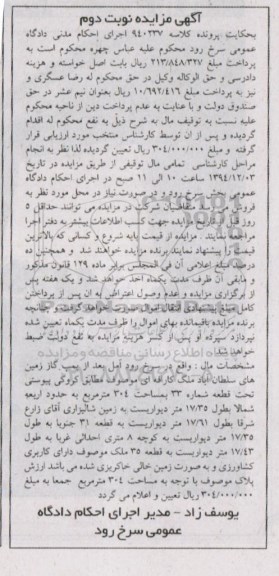 آگهی مزایده نوبت دوم
بحکایت پرونده کلاسه ۹۴۰۲۳۷ اجرای احکام مدنی دادگاه
عمومی سرخ رود محکوم علیه عباس چهره محکوم است به
پرداخت مبلغ ۲۱۳/۸۴۸/۳۲۷ ریال بابت اصل خواسته و هزینه
دادرسی و حق الوکاله وکیل در حق محکوم له رضا عسگری و
نیز به پرداخت مبلغ ۱۰/۶۹۲/۴۱۶ ریال بعنوان نیم عشر در حق
صندوق دولت و با عنایت به عدم پرداخت دین از ناحیه محکوم
علیه نسبت به توقیف مال به شرح ذیل به نفع محکوم له اقدام
گردیده و پس از ان توسط کارشناس منتخب مورد ارزیابی قرار
گرفته و مبلغ ۳۰۴/۰۰۰/۰۰۰ ریال تعیین گردیده لذا نظر به انجام
مراحل کارشناسی تمامی مال توقیفی از طریق مزایده در تاریخ
۱۳۹۴/۱۲/۰۳ ساعت ۱۰ الی ۱۱ صبح در اجرای احکام دادگاه
عمومی بخش سرخ رود و در صورت نیاز در محل مورد نظر به
فروش می رسد متقاضیان شرکت در مزایده می توانند حداقل ۵
روز قبل از تاریخ مزایده جهت کسب اطلاعات بیشتر به دفتر اجرا
مراجعه نمایند. مزایده از قیمت پایه شروع و کسانی که بالاترین
قیمت را پیشنهاد نمایند برنده مزایده خواهند شد و همچنین ده
درصد مبلغ اعلامی آن فی المجلس برابر ماده ۱۲۹ قانون مذکور
و مابقی آن ظرف مدت یکماه اخذ خواهد شد و یک هفته پس
از برگزاری مزایده و عدم وصول اعتراض به ان پس از پرداختن
کامل مبلغ پیشنهادی انتقال اموال صورت خواهد گرفت و چنانچه
برنده مزایده باقیمانده بهای اموال را ظرف مدت یکماه تعیین شده
نپردازد سپرده او پس از کسر هزینه مزایده به نفع دولت ضبط
خواهد شد
مشخصات مال: واقع در سرخ رود آمل بعد از پمپ گاز زمین
های سلطان آباد ملک کارافه ای موصوف مطابق کروکی پیوستی
تحت قطعه شماره ۳۳ بمساحت ۳۰۴ مترمربع به حدود اربعه
شمالا بطول ۱۷/۳۵ متر دیواریست به زمین شالیزاری آقای زارع
شرقا بطول ۱۷/۶۱ متر دیواریست به قطعه ۳۱ جنوبا به طول
۱۷/۳۵ متر دیواریست به کوچه ۸ متری احداثی غربا به طول
۱۷/۴۳ متر دیواریست به قطعه ۳۵ ملک موصوف دارای کاربری
کشاورزی و به صورت زمین خالی خاکریزی شده می باشد ارزش
پلاک موصوف با توجه به مساحت ۳۰۴ مترمربع جمعا به مبلغ
۳۰۴/۰۰۰/۰۰۰ ریال تعیین و اعلام می گردد
یوسف زاد - مدیر اجرای احکام دادگاه
عمومی سرخ رود